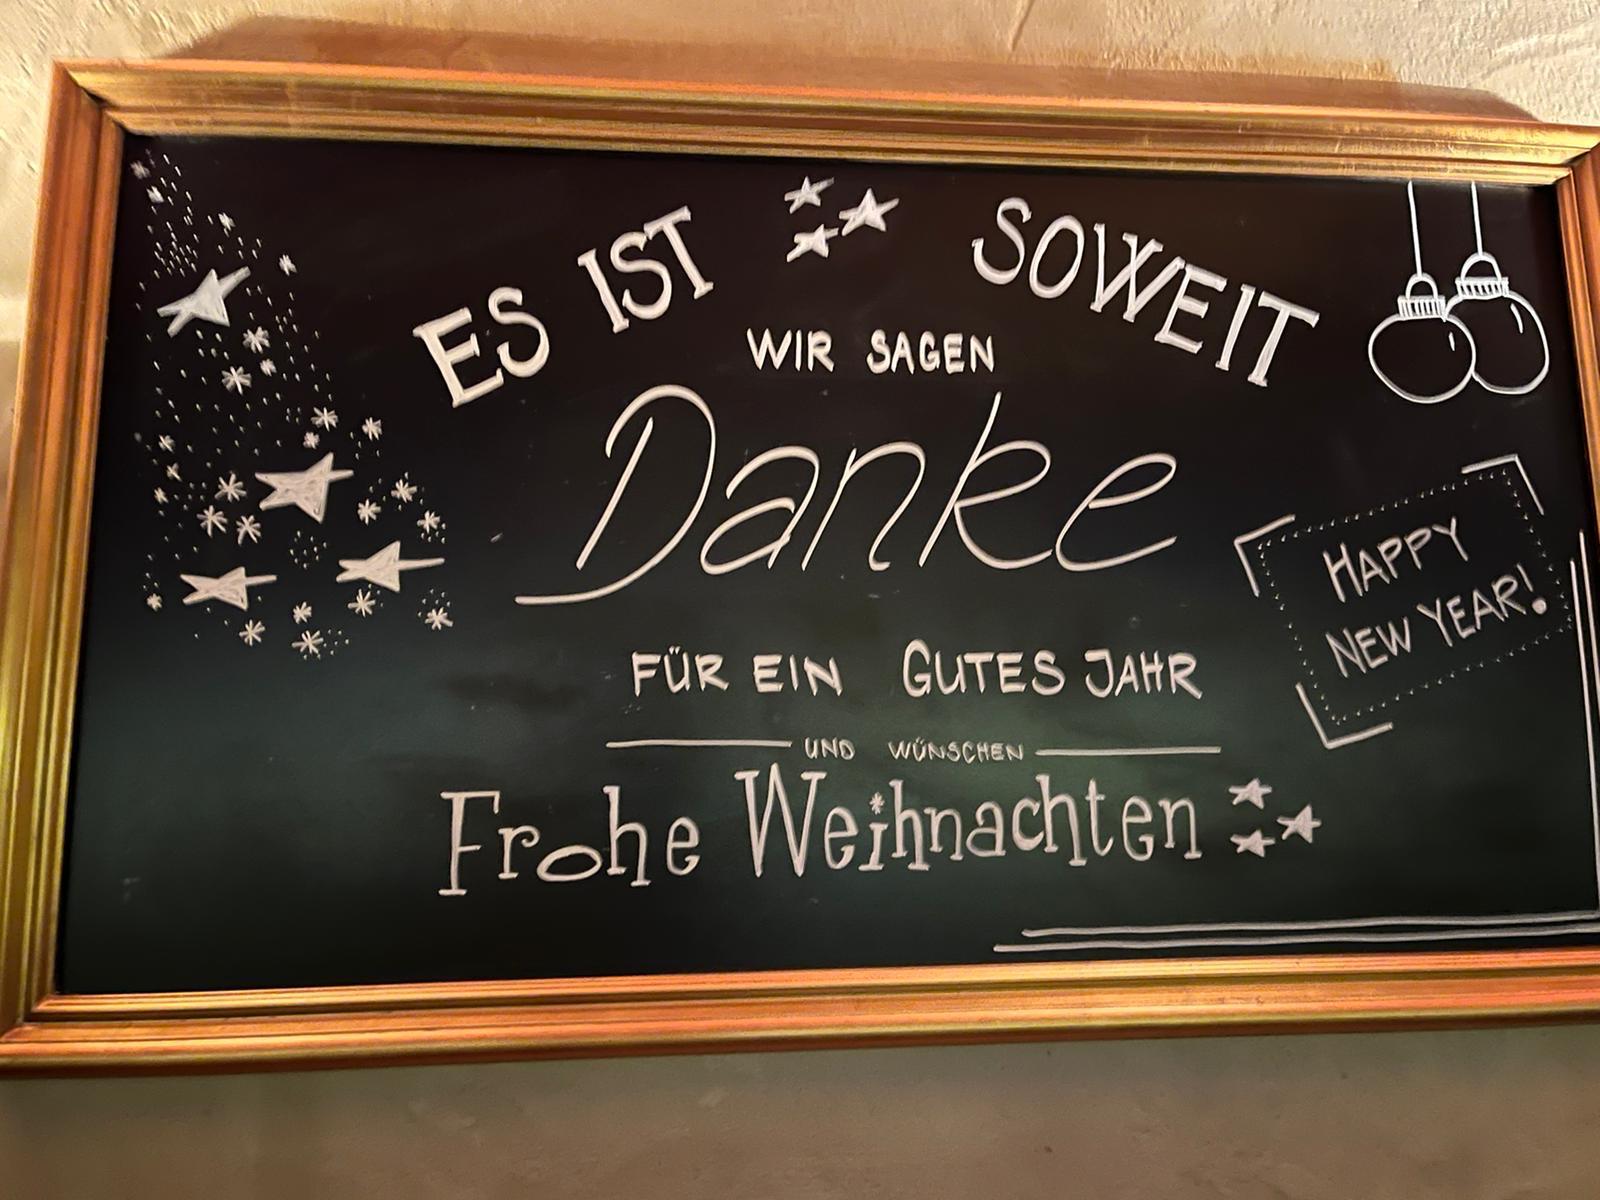 ES IST SOWEIT
WIR SAGEN
Danke
FÜR EIN GUTES JAHR
UND WÜNSCHEN
Frohe Weihnachten
HAPPY
NEW YEAR!